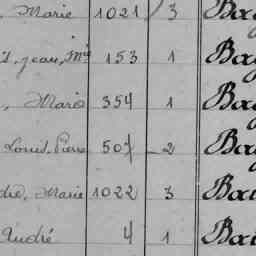 , Marie 1021 3 Bo
t, Jean, Mie 153 1 Ba
, Marie 354 1 Ba
Louis, Pierre 507 2 Ba
dré, Marie 1022 3 Bai
André 4 1 Bai